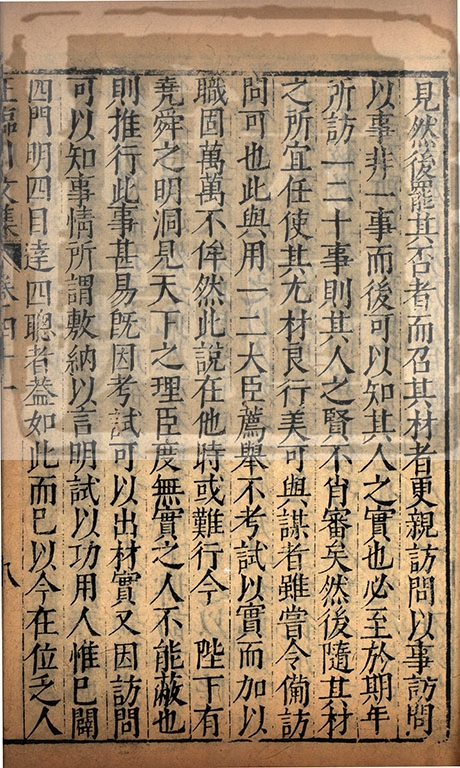 見然後罷其否者而召其材者更親訪問以事訪問
以事非一事而後可以知其人之實也必至於期年
所訪一二十事則其人之賢不肖審矣然後隨其材
之所宜任使其尤材良行美可與謀者雖嘗令備訪
問可也此與用一二大臣薦舉不考試以實而加以
職固萬萬不侔然此說在他時或難行今 陛下有
堯舜之明洞見天下之理臣度無實之人不能蔽也
則推行此事甚易旣因考試可以出材實又因訪問
可以知事情所謂敷納以言明試以功用人惟巳闢
四門明四目達四聰者葢如此而巳以今在位乏人
王臨川文集 卷四十一 八